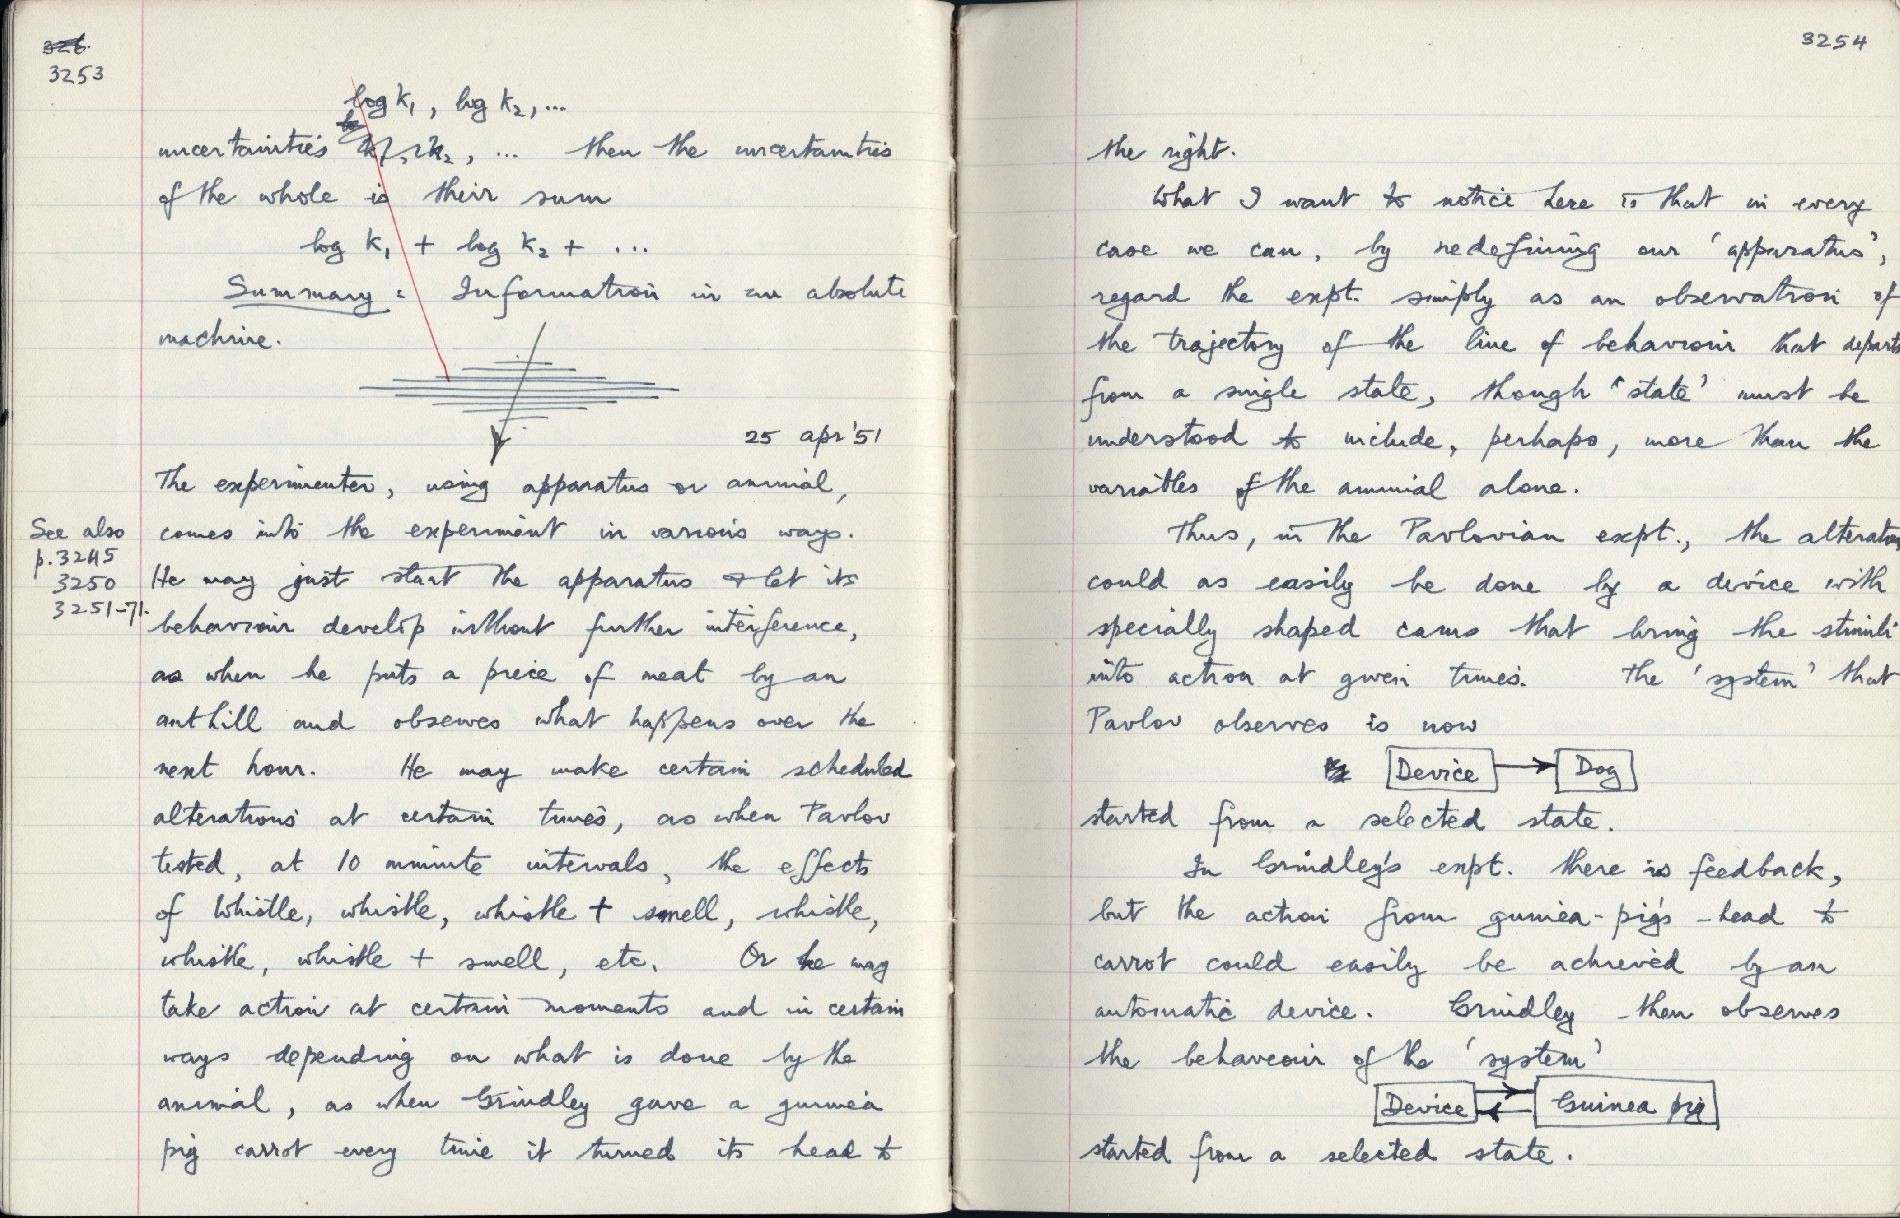 326.
3253
log k₁, log k₂, ...
uncertainties k₁, k₂, ... then the uncertainties
of the whole is their sum
log k₁ + log k₂ + ...
Summary: Information in an absolute
machine.
25 Apr '51
The experimenter, using apparatus or animal,
See also
p.3245
3250
3251-71.
comes into the experiment in various ways.
He may just start the apparatus & let its
behaviour develop without further interference,
as when he puts a piece of meat by an
anthill and observes what happens over the
next hour. He may make certain scheduled
alterations at certain times, as when Pavlov
tested, at 10 minute intervals, the effects
of whistle, whistle, whistle + smell, whistle,
whistle, whistle + smell, etc. Or he may
take action at certain moments and in certain
ways depending on what is done by the
animal, as when Grindley gave a guinea
pig carrot every time it turned its head to
3254
the right.
What I want to notice here is that in every
case we can, by redefining our 'apparatus',
regard the expt. simply as an observation of
the trajectory of the line of behaviour that departs
from a single state, though 'state' must be
understood to include, perhaps, more than the
variables of the animal alone.
Thus, in the Pavlovian expt., the alterations
could as easily be done by a device with
specially shaped cams that bring the stimuli
into action at given times. The 'system' that
Pavlov observes is now
Device → Dog
started from a selected state.
In Grindley's expt. there is feedback,
but the action from guinea-pig's-head to
carrot could easily be achieved by an
automatic device. Grindley then observes
the behaveour of the 'system'
Device ⇄ Guinea pig
started from a selected state.